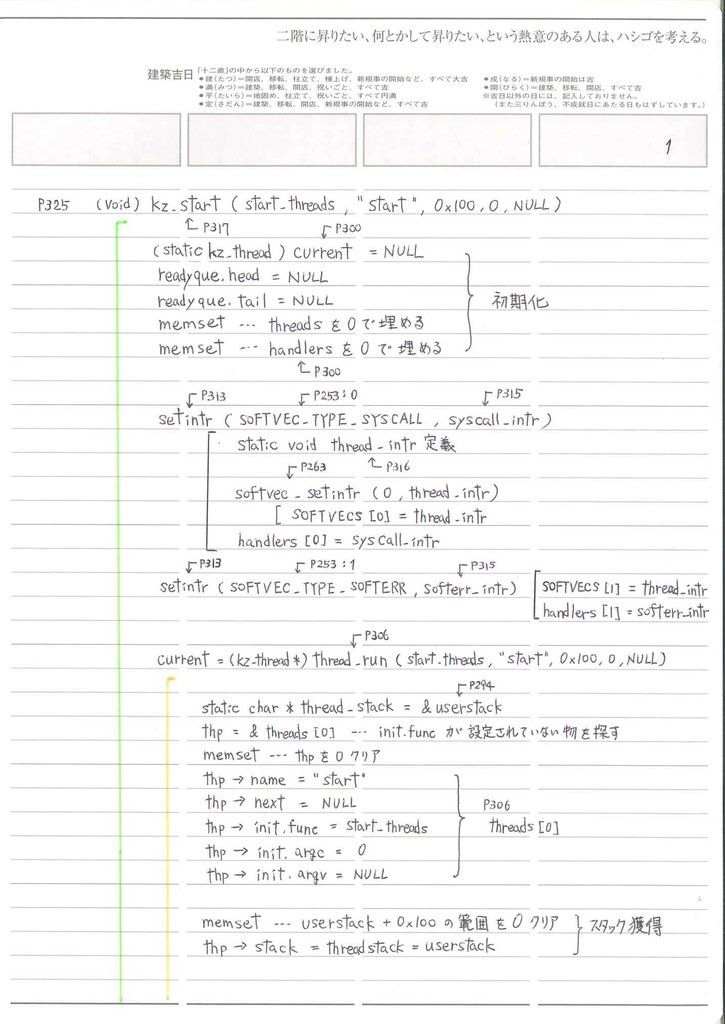 二階に昇りたい、何とかして昇りたい、という熱意のある人は、ハシゴを考える。
建築吉日「十二直」の中から以下のものを選びました。
●建(たつ)=開店、移転、柱立て、棟上げ、新規事の開始など、すべて大吉
●満(みつ)=建築、移転、開店、祝いごと、すべて吉
●平(たいら)=地固め、柱立て、祝いごと、すべて円満
●定(さだん)=建築、移転、開店、新規事の開始など、すべて吉
●成(なる)=新規事の開始は吉
●開(ひらく)=建築、移転、開店、すべて吉
※吉日以外の日には、記入しておりません。
(また三りんぼう、不成就日にあたる日もはずしています。)
1
P325 (void) kz_start ( start_threads, "start", 0x100, 0, NULL)
P317 P300
(static kz_thread) current = NULL
readyque.head = NULL
readyque.tail = NULL
初期化
memset … threads を 0 で埋める
memset … handlers を 0 で埋める
P300
P313 P253:0 P315
setintr ( SOFTVEC_TYPE_SYSCALL, syscall_intr)
static void thread_intr 定義
P263 P316
softvec_setintr (0, thread_intr)
[ SOFTVECS [0] = thread_intr
handlers [0] = syscall_intr
P313 P253:1 P315
setintr ( SOFTVEC_TYPE_SOFTERR, softerr_intr) [SOFTVECS [1] = thread_intr
handlers [1] = softerr_intr
P306
current = (kz_thread *) thread_run ( start_threads, "start", 0x100, 0, NULL)
P294
static char * thread_stack = & userstack
thp = & threads [0] … init.func が設定されていない物を探す
memset … thp を 0 クリア
thp → name = "start"
thp → next = NULL
P306
thp → init.func = start_threads
threads [0]
thp → init.argc = 0
thp → init.argv = NULL
memset … userstack + 0x100 の範囲を 0 クリア } スタック獲得
thp → stack = threadstack = userstack